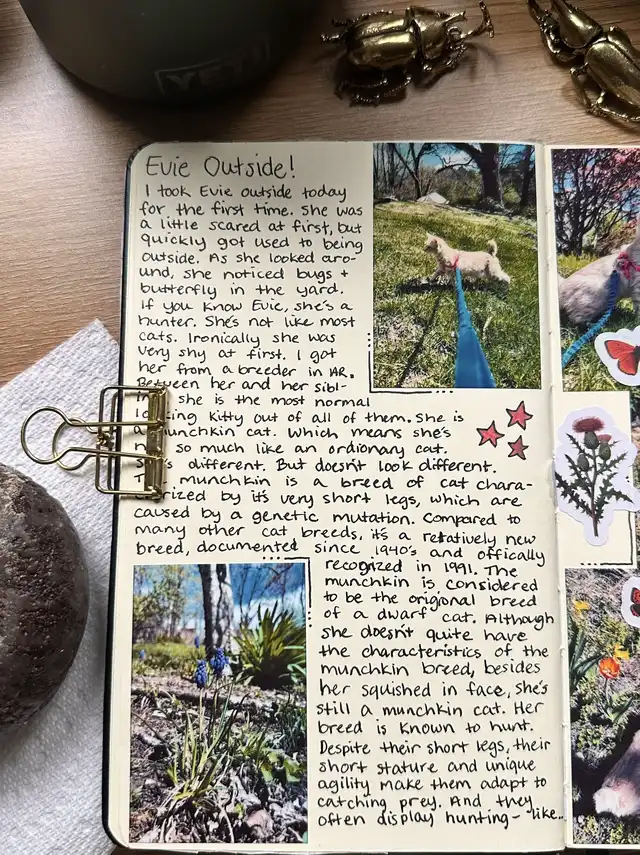 YETI
Evie Outside!
I took Evie outside today
for the first time. She was
a little scared at first, but
quickly got used to being
outside. As she looked aro-
und, she noticed bugs +
butterfly in the yard.
If you know Evie, she's a
hunter. She's not like most
cats. Ironically she was
very shy at first. I got
her from a breeder in AR.
Between her and her sibl-
she is the most normal
looking kitty out of all of them. She is
a munchkin cat. Which means she's
so much like an ordionary cat.
She's different. But doesn't look different.
The munchkin is a breed of cat chara-
rized by it's very short legs, which are
caused by a genetic mutation. Compared to
many other cat breeds, it's a relatively new
breed, documented since 1940's and offically
recognized in 1991. The
munchkin is considered
to be the original breed
of a dwarf cat. Although
she doesn't quite have
the characteristics of the
munchkin breed, besides
her squished in face, she's
still a munchkin cat. Her
breed is known to hunt.
Despite their short legs, their
short stature and unique
agility make them adapt to
catching prey. And they
often display hunting-like..